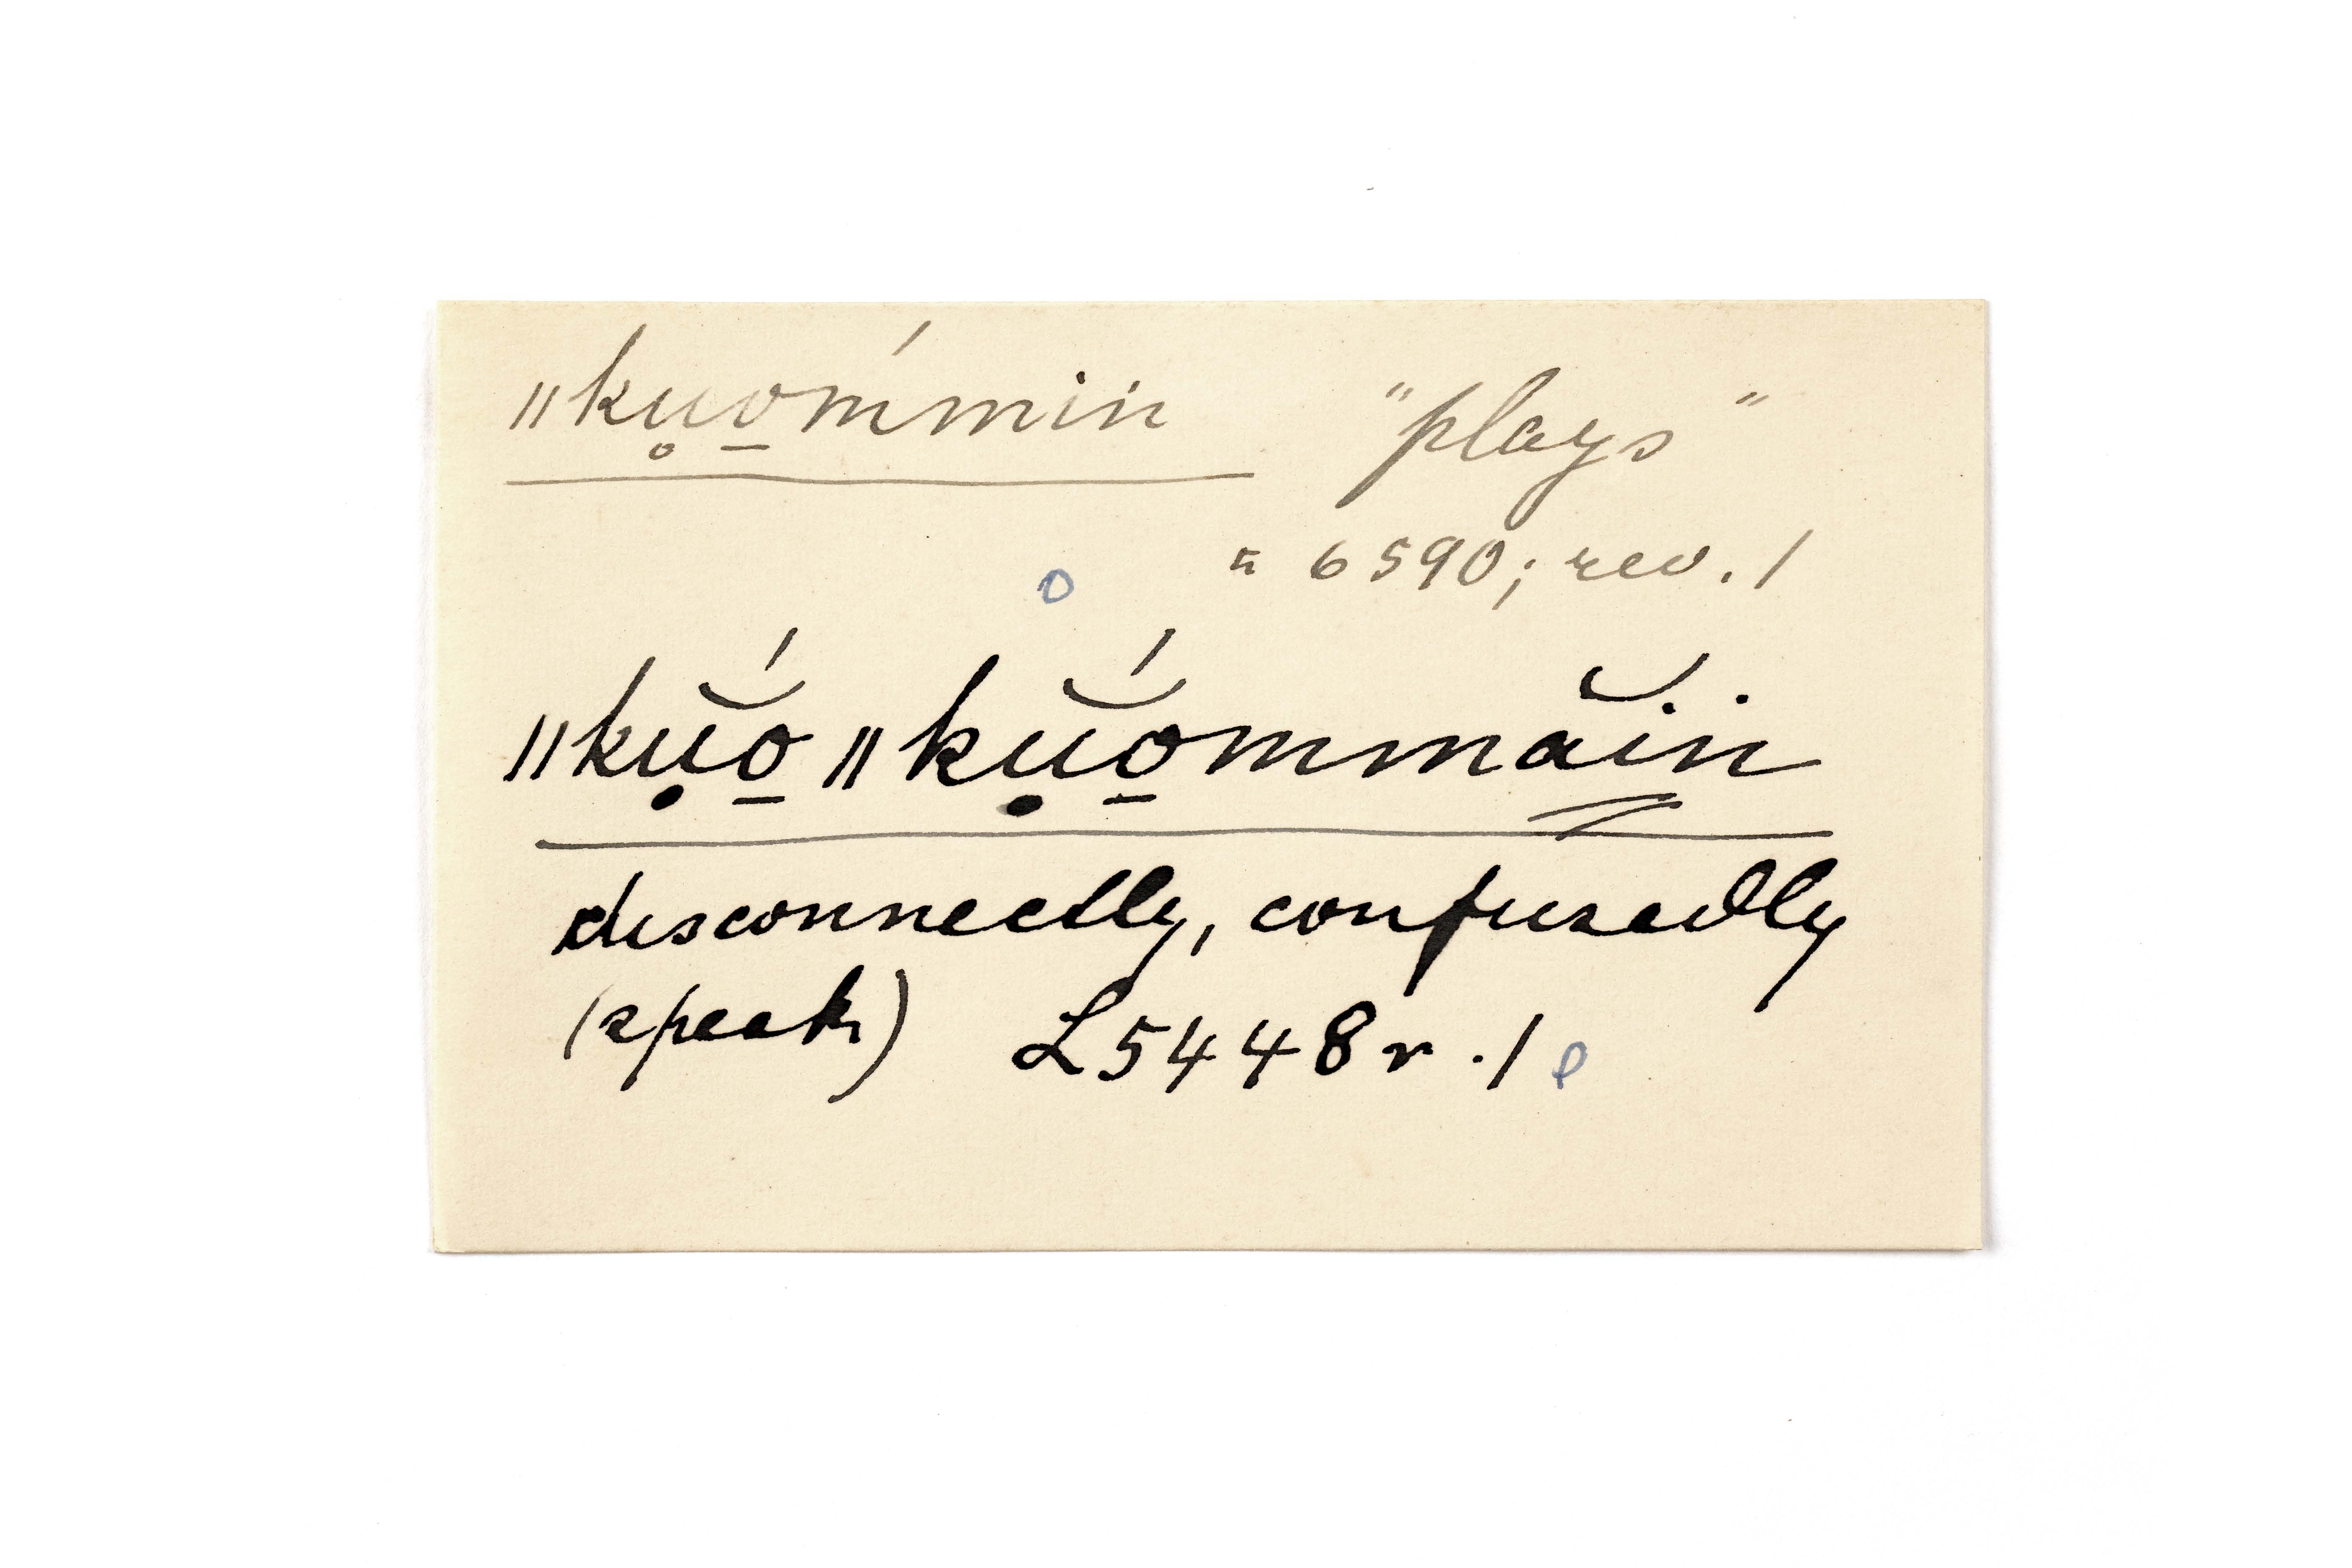 ǁku̥o̱m´min "plays"
= 6590; rev. /
o
ǁkụŏ̱́ ǁkụŏ̱́mmăin
disconnectly, confusedly
(speak) L 5448 r. /